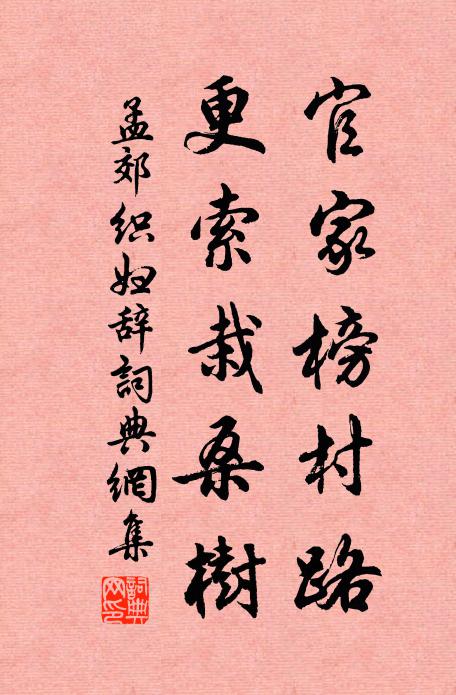 官家榜村路
更索栽桑樹
孟郊织妇辞詞典網集
詞典网印